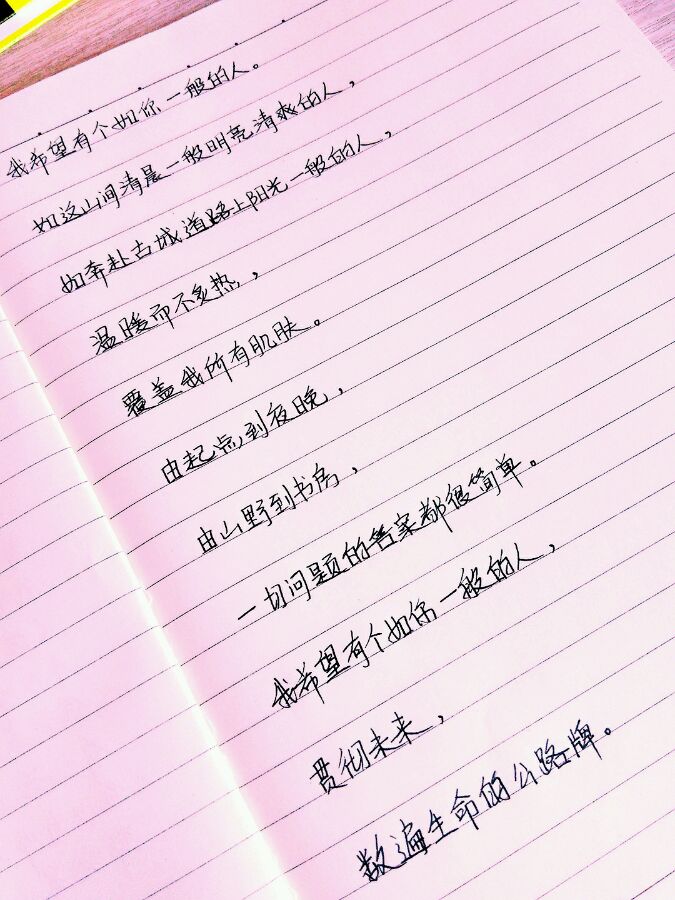 我希望有个如你一般的人。
如这山间清晨一般明亮清爽的人，
如奔赴古城道路上阳光一般的人，
温暖而不炙热，
覆盖我所有肌肤。
由起点到夜晚，
由山野到书房，
一切问题的答案都很简单。
我希望有个如你一般的人，
贯彻未来，
数遍生命的公路牌。